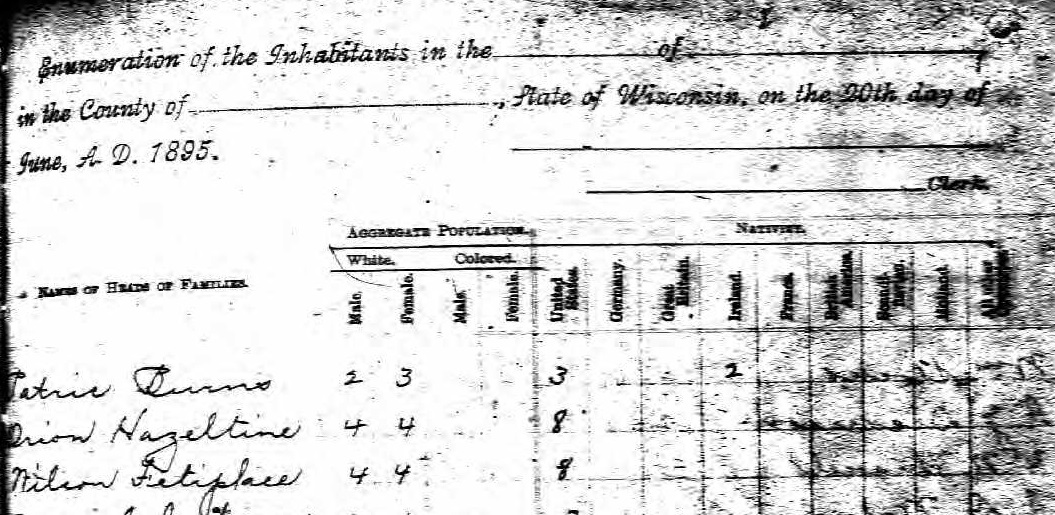 Enumeration of the Inhabitants in the of
in the County of , State of Wisconsin, on the 20th day of
June, A. D. 1895.
Clerk.
AGGREGATE POPULATION. NATIVITY.
White. Colored.
NAMES OF HEADS OF FAMILIES.
Male. Female. Male. Female. United States. Germany. Great Britain. Ireland. France. British America. Holland. All other
Patric Burns 2 3 3 2
Orion Hazeltine 4 4 8
Wilson Fetiplace 4 4 8